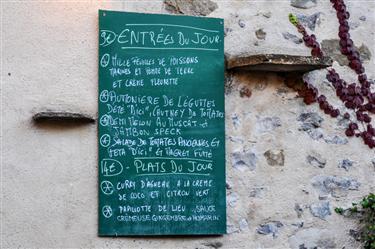 9€ ENTRÉES DU JOUR
MILLE FEUILLES DE POISSONS
TARINES ET POMME DE TERRE
ET CRÈME FLEURETTE
AUTONIÈRE DE LÉGUTTES
D'ÉTÉ "D'ICI", CHUTNEY DE TOMATES
DEMI MELON AU MUSCAT ET
JAMBON SPECK
SALADE DE TOMATES ANCIENNES ET
FETA "D'ICI" ET MAGRET FUMÉ
14€ - PLATS DU JOUR
CURRY D'AGNEAU A LA CRÈME
DE COCO ET CITRON VERT
PAPILLOTE DE LIEU, SAUCE
CRÉMEUSE GINGEMBRE ET ROMARIN